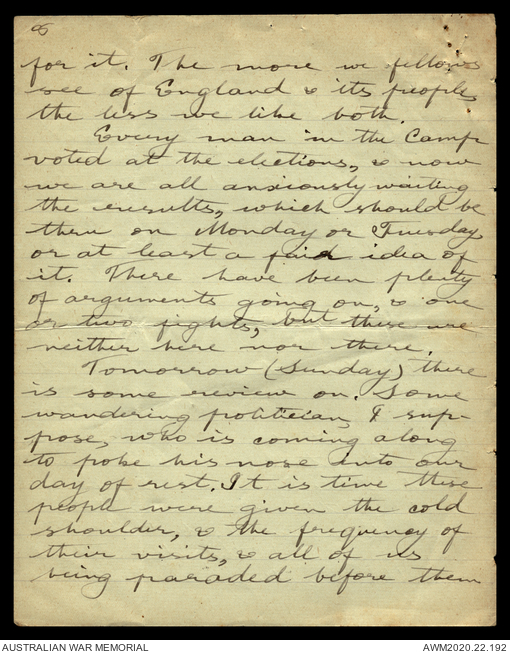 8
for it. The more we fellows
see of England & its people,
the less we like both.
Every man in the Camp
voted at the elections, & now
we are all anxiously waiting
the results, which should be
thru on Monday or Tuesday
or at least a fair idea of
it. There have been plenty
of arguments going on, & one
or two fights, but these are
neither here nor there.
Tomorrow (Sunday) there
is some review on. Some
wandering politician, I sup-
pose, who is coming along
to poke his nose into our
day of rest. It is time these
people were given the cold
shoulder, & the frequency of
their visits, & all of us
being paraded before them
AUSTRALIAN WAR MEMORIAL
AWM2020.22.192